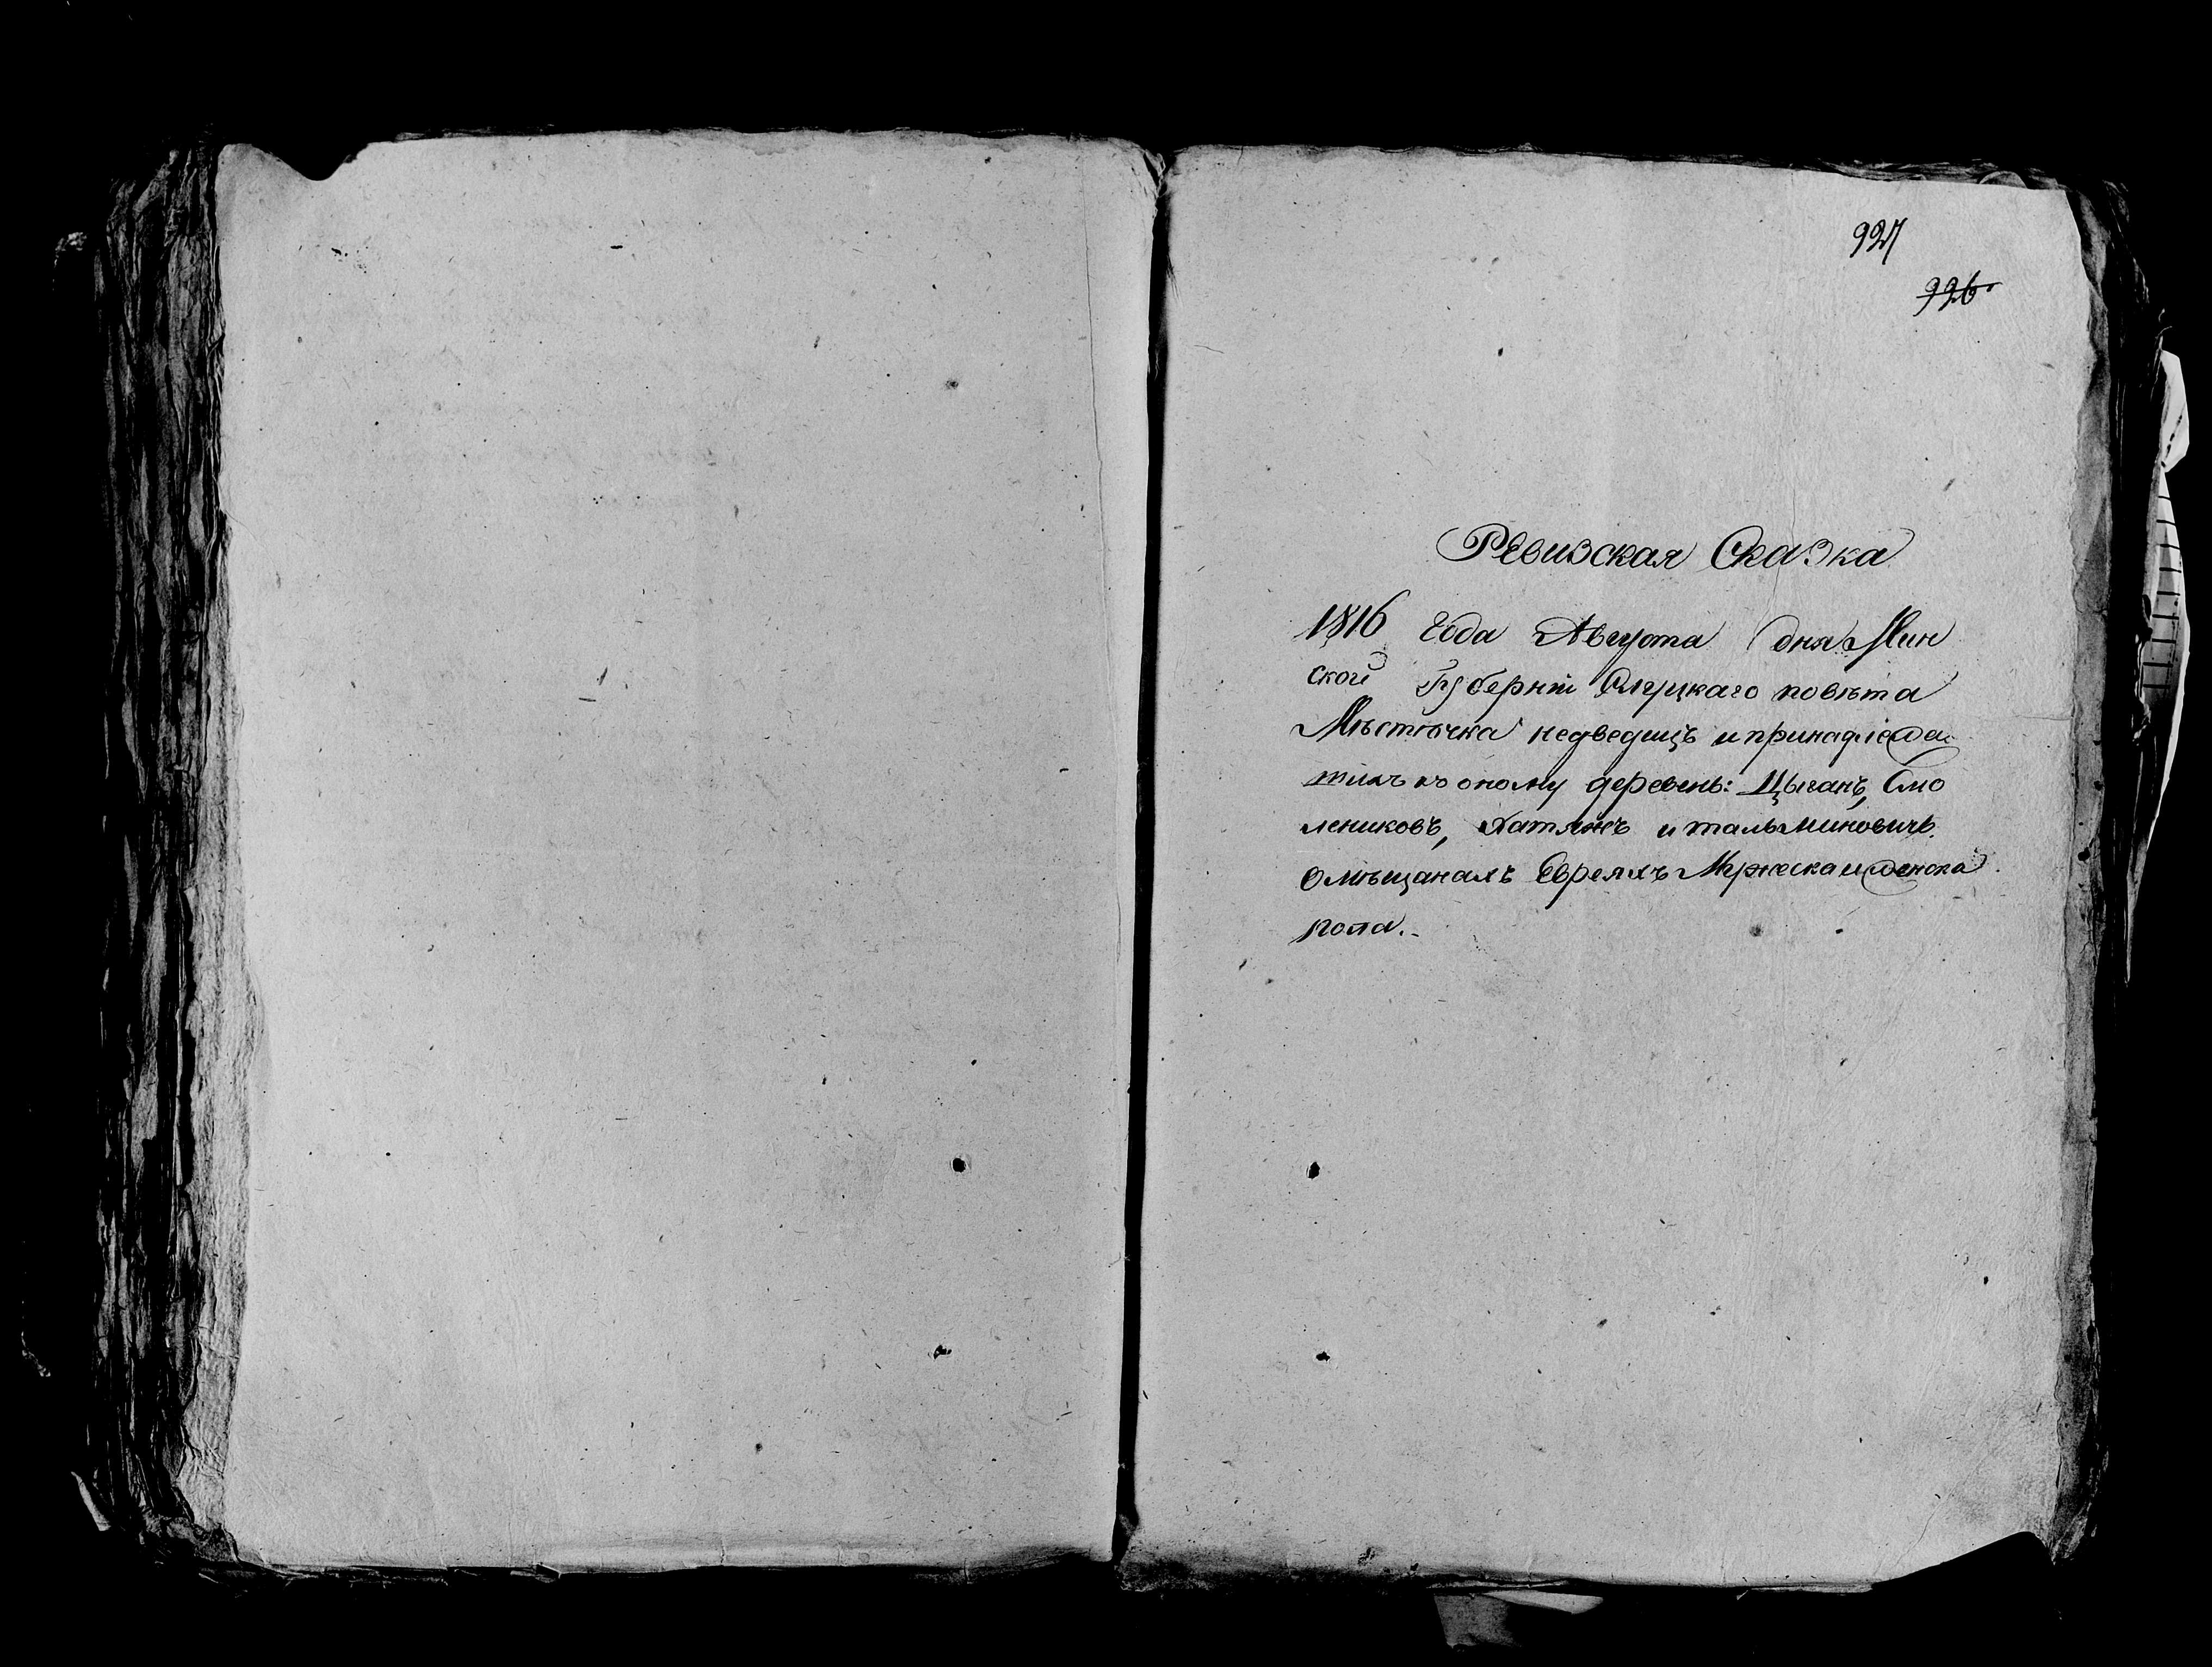 927
926
Ревизская Сказка
1816 года Августа дня Мин
ской Губернiи Слуцкаго повѣта
Мѣстечка недведицъ и принадлежа
тихъ к оному деревень: Цыганъ, Смо
лениковъ, Хатянъ и тальминовичъ.
О мѣщанахъ Евреяхъ Мужеска и женска
пола.